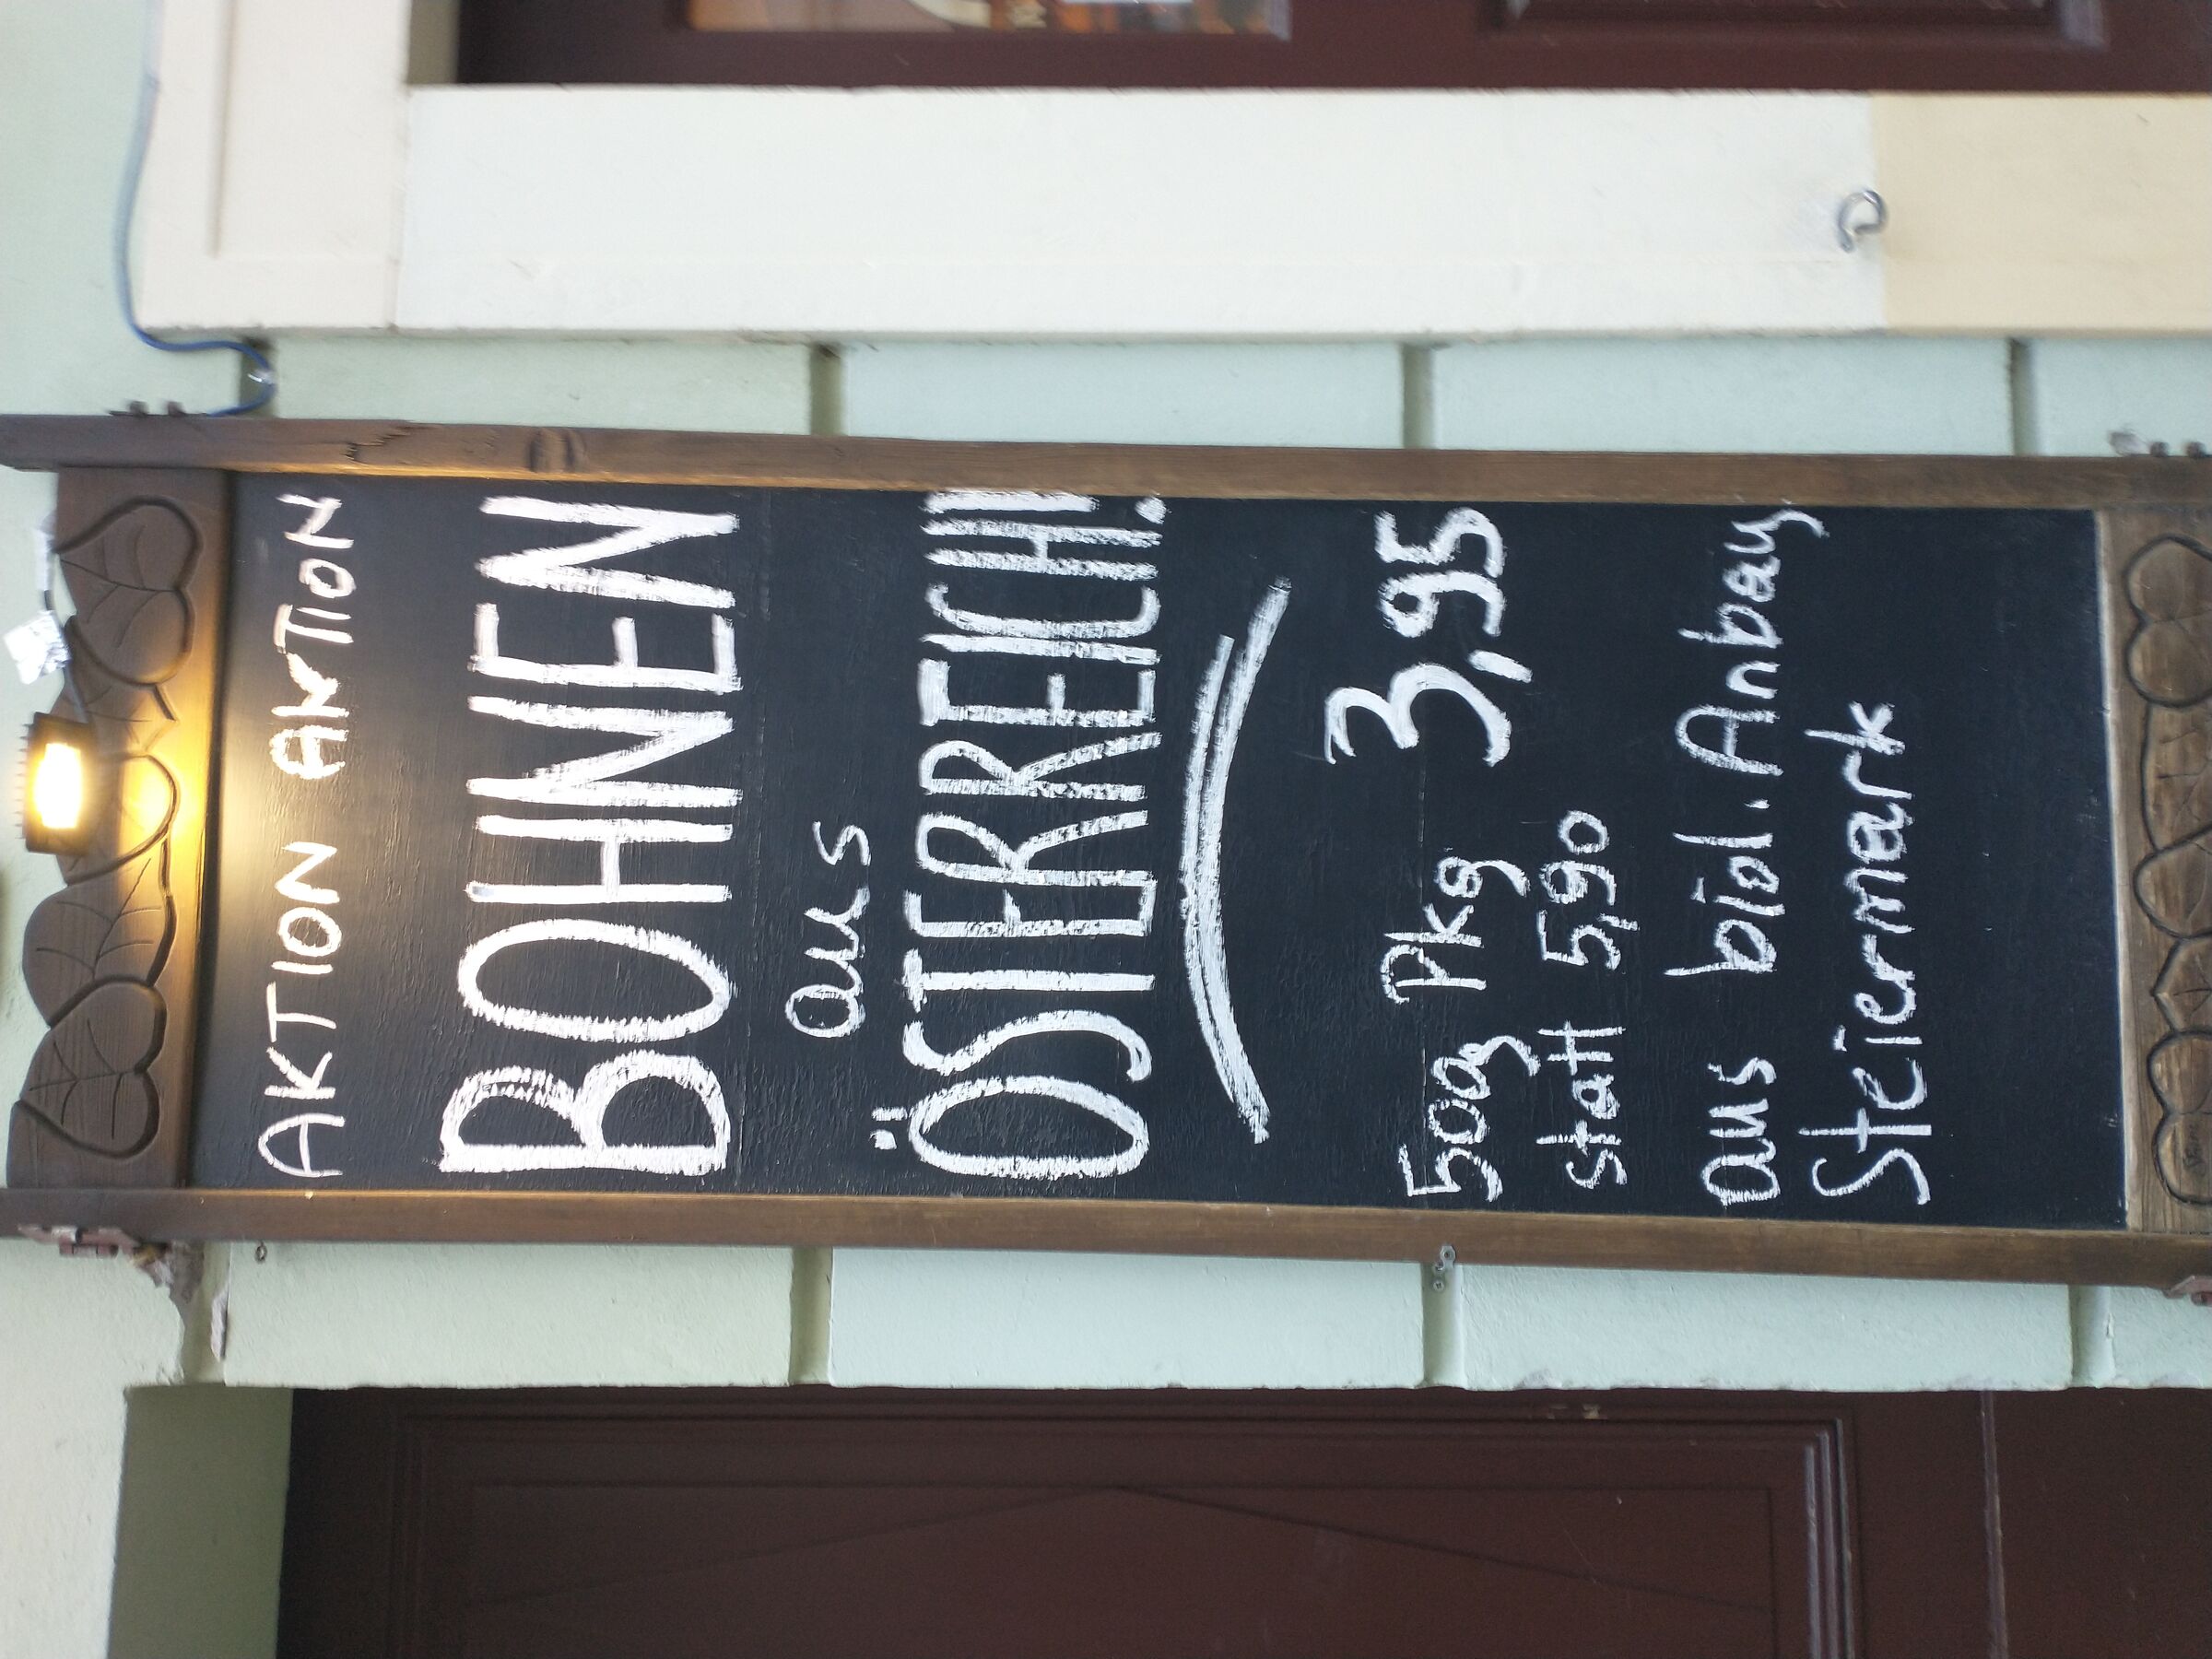 AKTION AKTION
BOHNEN
aus
ÖSTERREICH!
500g Pkg 3,95
statt 5,90
aus biol. Anbau
Steiermark